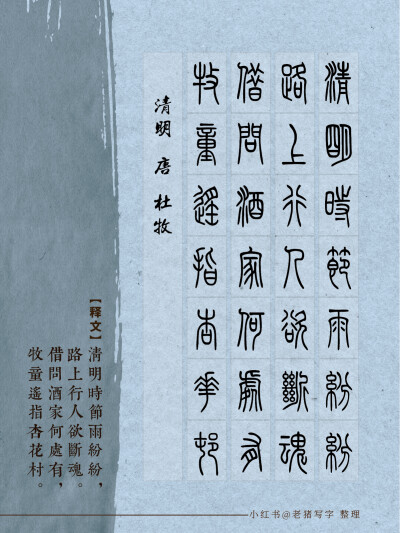 清明時節雨紛紛
路上行人欲斷魂
借問酒家何處有
牧童遙指杏花村
清明 唐 杜牧
【释文】清明時節雨紛紛，
路上行人欲斷魂。
借問酒家何處有，
牧童遙指杏花村。
小红书@老猪写字 整理